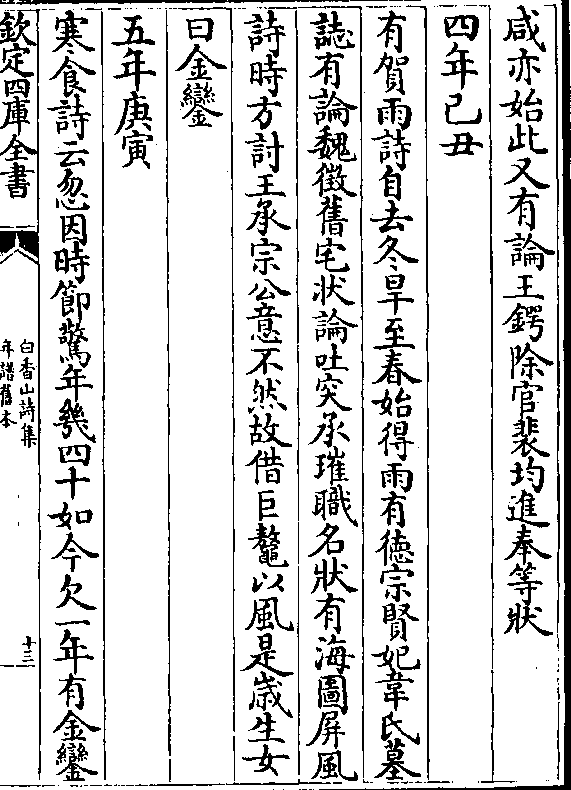 咸亦始此又有論王鍔除官裴均進奉等狀
四年己丑
有賀雨詩自去冬旱至春始得雨有徳宗賢妃韋氏墓
誌有論魏徴舊宅狀論吐突承璀職名狀有海圖屏風
詩時方討王承宗公意不然故借巨鼇以風是歳生女
曰金鑾
五年庚寅
寒食詩云忽因時節驚年幾四十如今欠一年有金鑾
欽定四庫全書
白香山詩集
年譜舊本
十三